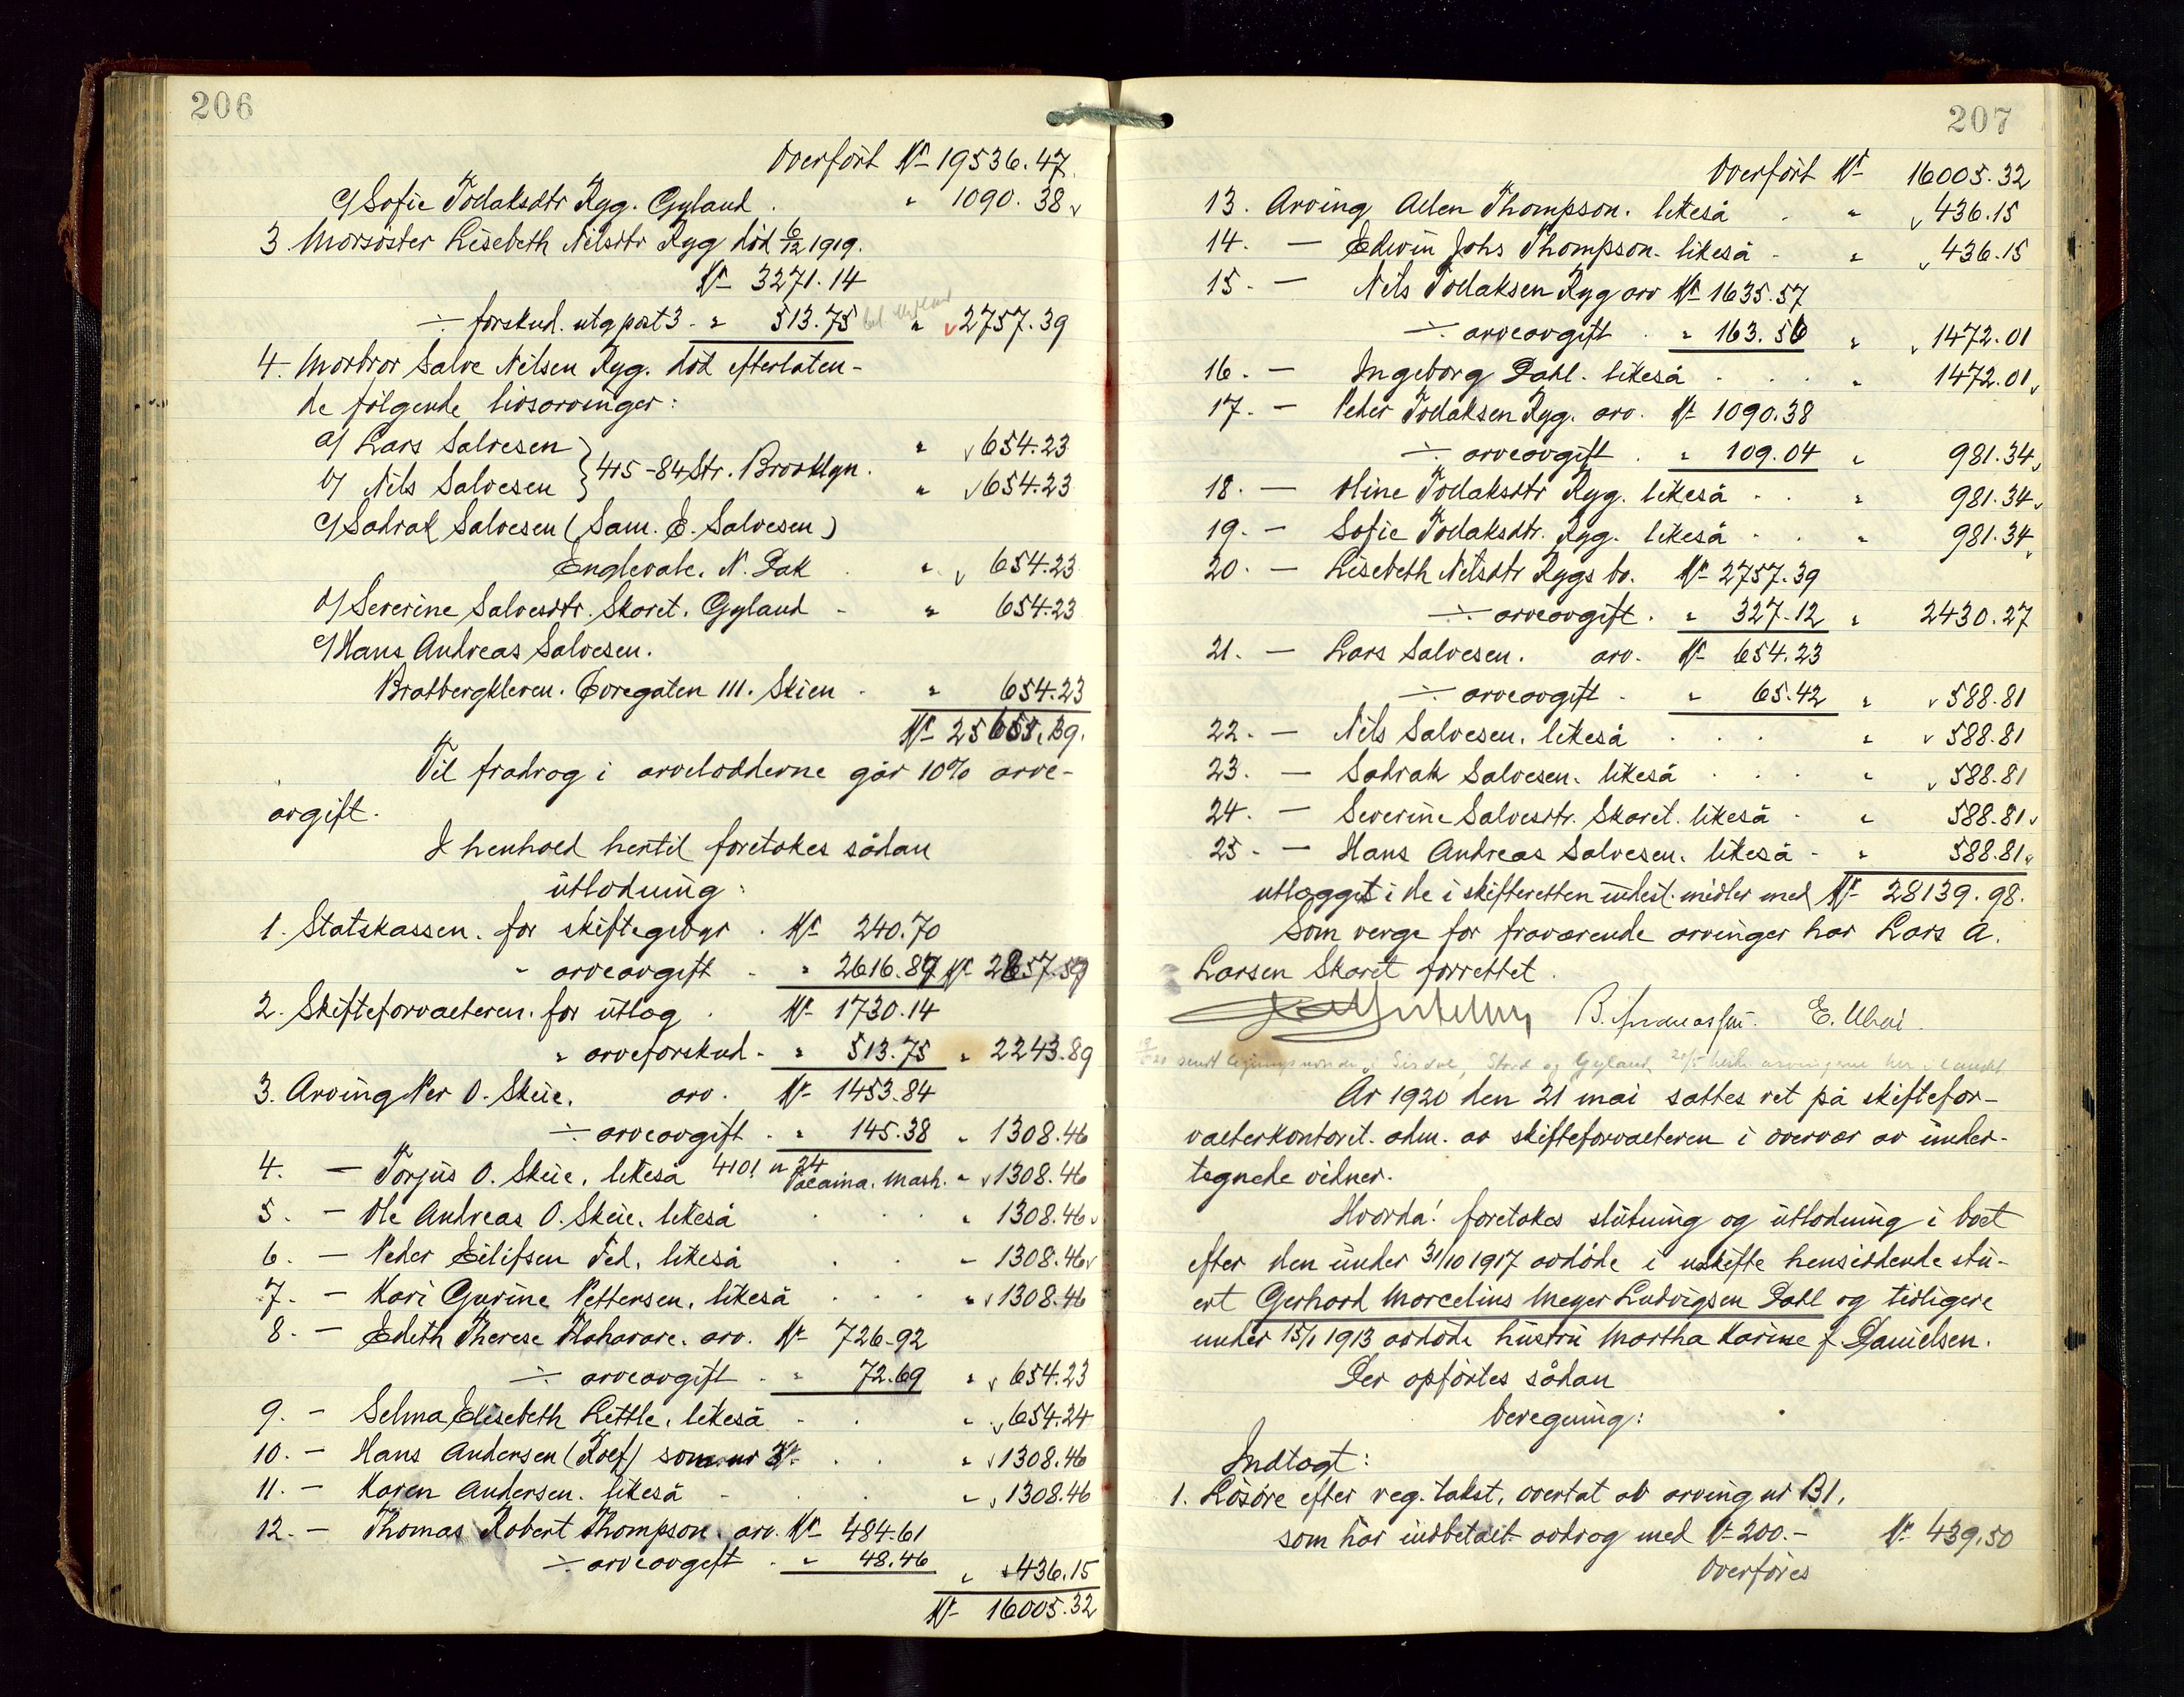 206
Overført Kr 19536.47
c/ Sofie Todaksdtr Ryg. Gyland . " 1090.38
3 Morsøster Lisebeth Nilsdtr Ryg død 6/12 1919.
Kr 3271.14
÷ forskud. utg post 3 - " 513.75 " 2757.39
4. Morbror Salve Nilsen Ryg. død efterlaten-
de følgende livsarvinger:
a/ Lars Salvesen " 654.23
b/ Nils Salvesen } 415-84 Str. Brooklyn. " 654.23
c/ Sadrak Salvesen (Sam. E. Salvesen)
Englevale. N. Dak " 654.23
d/ Severine Salvesdtr. Skaret. Gyland - " 654.23
e/ Hans Andreas Salvesen.
Bratbergkleven. Øvregaten 111. Skien - " 654.23
Kr 25655.39.
Til fradrag i arvelodderne går 10% arve-
avgift.
I henhold hertil foretakes sådan
utlodning:
1. Statskassen. for skiftegebyr . Kr 240.70
- arveavgift - " 2616.89 Kr 2857.59
2. Skifteforvalteren. for utlæg . Kr 1730.14
" arveforskud - " 513.75 " 2243.89
3. Arving Per O. Skeie. arv. Kr 1453.84
÷ arveavgift . " 145.38 " 1308.46
4. — Torjus O. Skeie. likeså 4101 n 24 Tacoma. Wash. - 1308.46
5. - Ole Andreas O. Skeie. likeså " 1308.46
6. — Peder Eilifsen Fed. likeså - 1308.46
7. - Kari Gurine Pettersen. likeså " 1308.46
8. - Edith Therese Flaharare. arv. Kr 726.92
÷ arveavgift . " 72.69 " 654.23
9. - Selma Elisebeth Little. likeså - " 654.24
10. — Hans Andersen (Roef) som nr 3. " 1308.46
11. — Karen Andersen. likeså - 1308.46
12. — Thomas Robert Thompson. arv. Kr 484.61
÷ arveavgift . " 48.46 " 436.15
Kr 16005.32
207
Overført Kr 16005.32
13. Arving Allen Thompson. likeså . " 436.15
14. — Edwin Johs Thompson. likeså - " 436.15
15. — Nils Todaksen Ryg arv Kr 1635.57
÷ arveavgift . " 163.56 " 1472.01
16. — Ingeborg Dahl. likeså . . . " 1472.01
17. — Peder Todaksen Ryg. arv. Kr 1090.38
÷ arveavgift . " 109.04 " 981.34
18. — Oline Todaksdtr Ryg. likeså . . " 981.34
19. — Sofie Todaksdtr. Ryg. likeså . . " 981.34
20. — Lisebeth Nilsdtr Rygs bo. Kr 2757.39
÷ arveavgift . " 327.12 " 2430.27
21. — Lars Salvesen. arv. Kr 654.23
÷ arveavgift - " 65.42 " 588.81
22. — Nils Salvesen. likeså . . . " 588.81
23. — Sadrak Salvesen. likeså . . . " 588.81
24. — Severine Salvesdtr. Skaret. likeså - " 588.81
25. — Hans Andreas Salvesen. likeså - " 588.81
utlægget i de i skifteretten indest. midler med Kr 28139.98.
Som verge for fraværende arvinger har Lars A.
Larsen Skaret forrettet.
B. Andreassen. E. Ubøi.
Sirdal, Stord og Gyland
År 1920 den 21 mai sattes ret på skiftefor-
valterkontoret. adm. av skifteforvalteren i overvær av under-
tegnede vidner.
Hvorda! foretakes slutning og utlodning i boet
efter den under 31/10 1917 avdøde i uskifte hensiddende stu-
ert Gerhard Marcelius Meyer Ludvigsen Dahl og tidligere
under 15/1 1913 avdøde hustru Martha Karine f. Danielsen.
Der opførtes sådan
beregning:
Indtægt:
1. Løsøre efter reg. takst, overtat av arving nr B1,
som har indbetalt avdrag med Kr 200.- Kr 439.50
Overføres